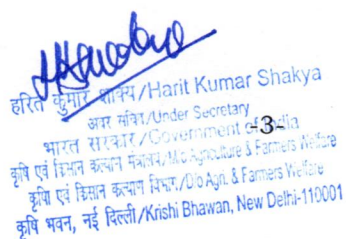 हरित कुमार शाक्य/Harit Kumar Shakya
अवर सचिव/Under Secretary
भारत सरकार/Government of India
-3-
कृषि एवं किसान कल्याण मंत्रालय/M/o Agriculture & Farmers Welfare
कृषि एवं किसान कल्याण विभाग/D/o Agri. & Farmers Welfare
कृषि भवन, नई दिल्ली/Krishi Bhawan, New Delhi-110001